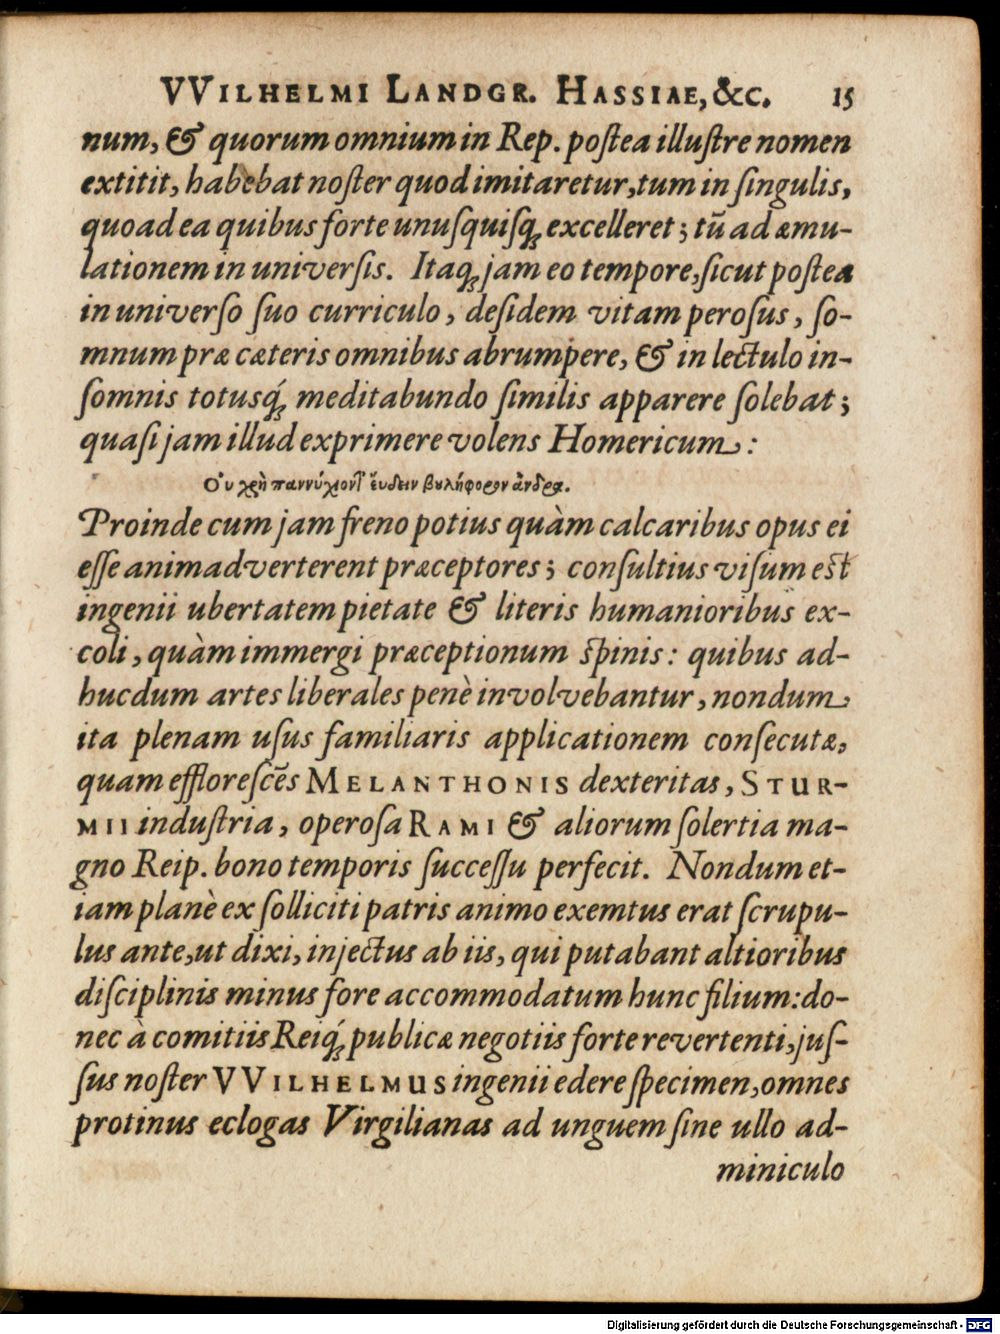 VVILHELMI LANDGR. HASSIAE, &c. 15
num, & quorum omnium in Rep. poſtea illuſtre nomen
extitit, habebat noſter quod imitaretur, tum in ſingulis,
quoad ea quibus forte unuſquiſq; excelleret; tũ ad æmu-
lationem in universis. Itaq; jam eo tempore, sicut poſtea
in universo ſuo curriculo, deſidem vitam peroſus, ſo-
mnum præ cæteris omnibus abrumpere, & in lectulo in-
ſomnis totusq́; meditabundo ſimilis apparere ſolebat;
quaſi jam illud exprimere volens Homericum:
Ου χρὴ παννύχιον εὕδειν βουλήφορον ἄνδρα.
Proinde cum jam freno potius quàm calcaribus opus ei
eſſe animadverterent præceptores; conſultius viſum eſt
ingenii ubertatem pietate & literis humanioribus ex-
coli, quàm immergi præceptionum ſpinis: quibus ad-
hucdum artes liberales penè involvebantur, nondum
ita plenam uſus familiaris applicationem conſecutæ,
quam effloreſcẽs MELANTHONIS dexteritas, STUR-
MII induſtria, operoſa RAMI & aliorum ſolertia ma-
gno Reip. bono temporis ſucceſſu perfecit. Nondum et-
iam planè ex ſolliciti patris animo exemtus erat ſcrupu-
lus ante, ut dixi, injectus ab iis, qui putabant altioribus
diſciplinis minus fore accommodatum hunc filium: do-
nec à comitiis Reiq́; publicæ negotiis forte revertenti, juſ-
ſus noſter VVILHELMUS ingenii edere ſpecimen, omnes
protinus eclogas Virgilianas ad unguem ſine ullo ad-
miniculo
Digitalisierung gefördert durch die Deutsche Forschungsgemeinschaft - DFG